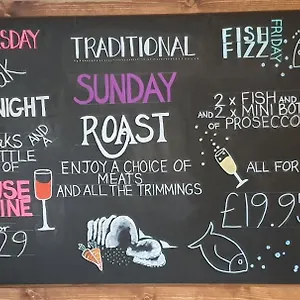 SDAY
NIGHT
AND A
TTLE
OF
USE
INE
29
TRADITIONAL
SUNDAY
ROAST
ENJOY A CHOICE OF
MEATS
AND ALL THE TRIMMINGS
FISH
FIZZ
FRIDAY
2 x FISH AND
AND 2 x MINI BO
OF PROSECCO
ALL FOR
£19.9